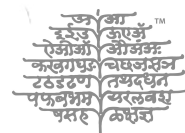 अ आ TM
इ ई उ ऊ ए ऑ
ऐ ओ औ ओ अं अः
क ख ग घ ङ च छ ज झ ञ
ट ठ ड ढ ण त थ द ध न
प फ ब भ म य र ल व श
ष स ह ळ क्ष ज्ञ